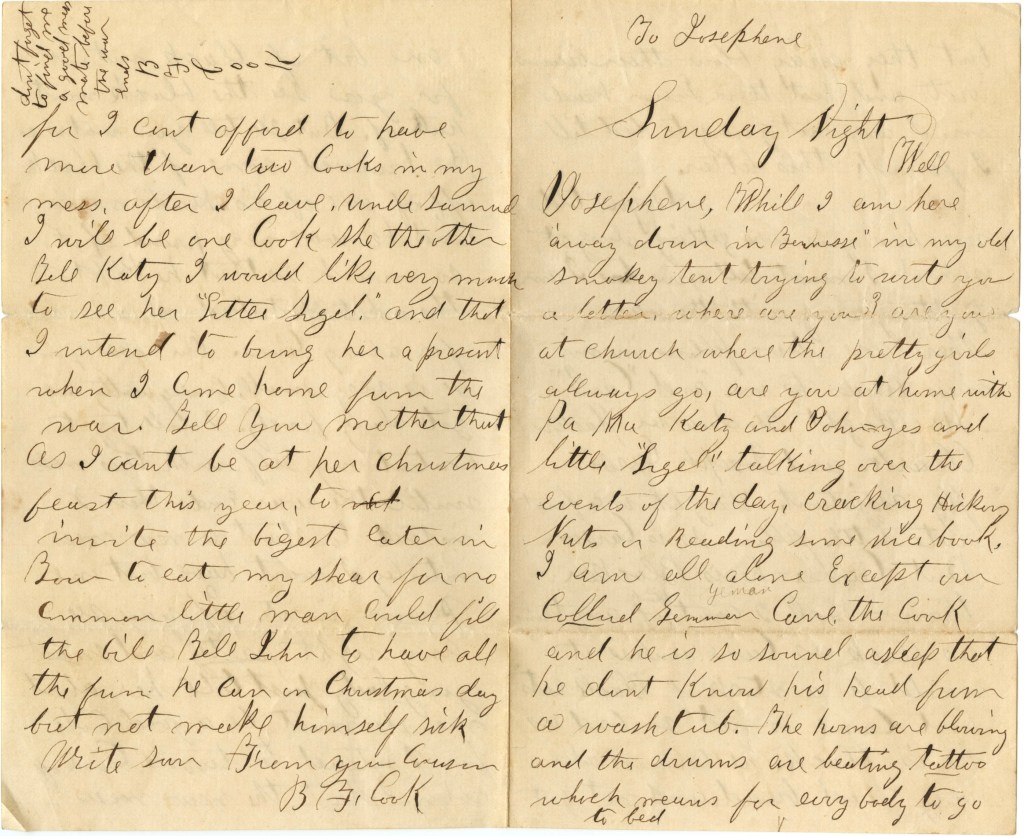 To Josephene
Sunday Night
Well
Josephene, Whill I am here
away down in Tennesse" in my old
smokey tent trying to write you
a letter, where are you? are you
at church where the pretty girls
allways go, are you at home with
Pa Ma Katy and John yes and
little "Sigel" talking over the
events of the day, cracking Hickory
Nuts or Reading some nice book.
I am all alone Except our
yeman
Collud Gemman Cane. the Cook
and he is so sound asleep that
he dont Know his head from
a wash tub. The horns are blowing
and the drums are beating tattoo
which means for evry body to go
to bed
dont forget
to find me
a good mess
mate before
the war
ends
B F Cook
for I cant afford to have
more than two Cooks in my
mess, after I leave. uncle Samuel
I will be one Cook she the other
Tell Katy I would like very much
to see her "Little Sigel." and that
I intend to bring her a present
when I come home from the
war. Tell You mother that
As I cant be at her christmas
feast this year, to not
invite the bigest eater in
Town to eat my shear for no
common little man could fill
the bill Tell John to have all
the fun he can on Christmas day
but not make himself sick
Write soon From your Cousin
B F. Cook